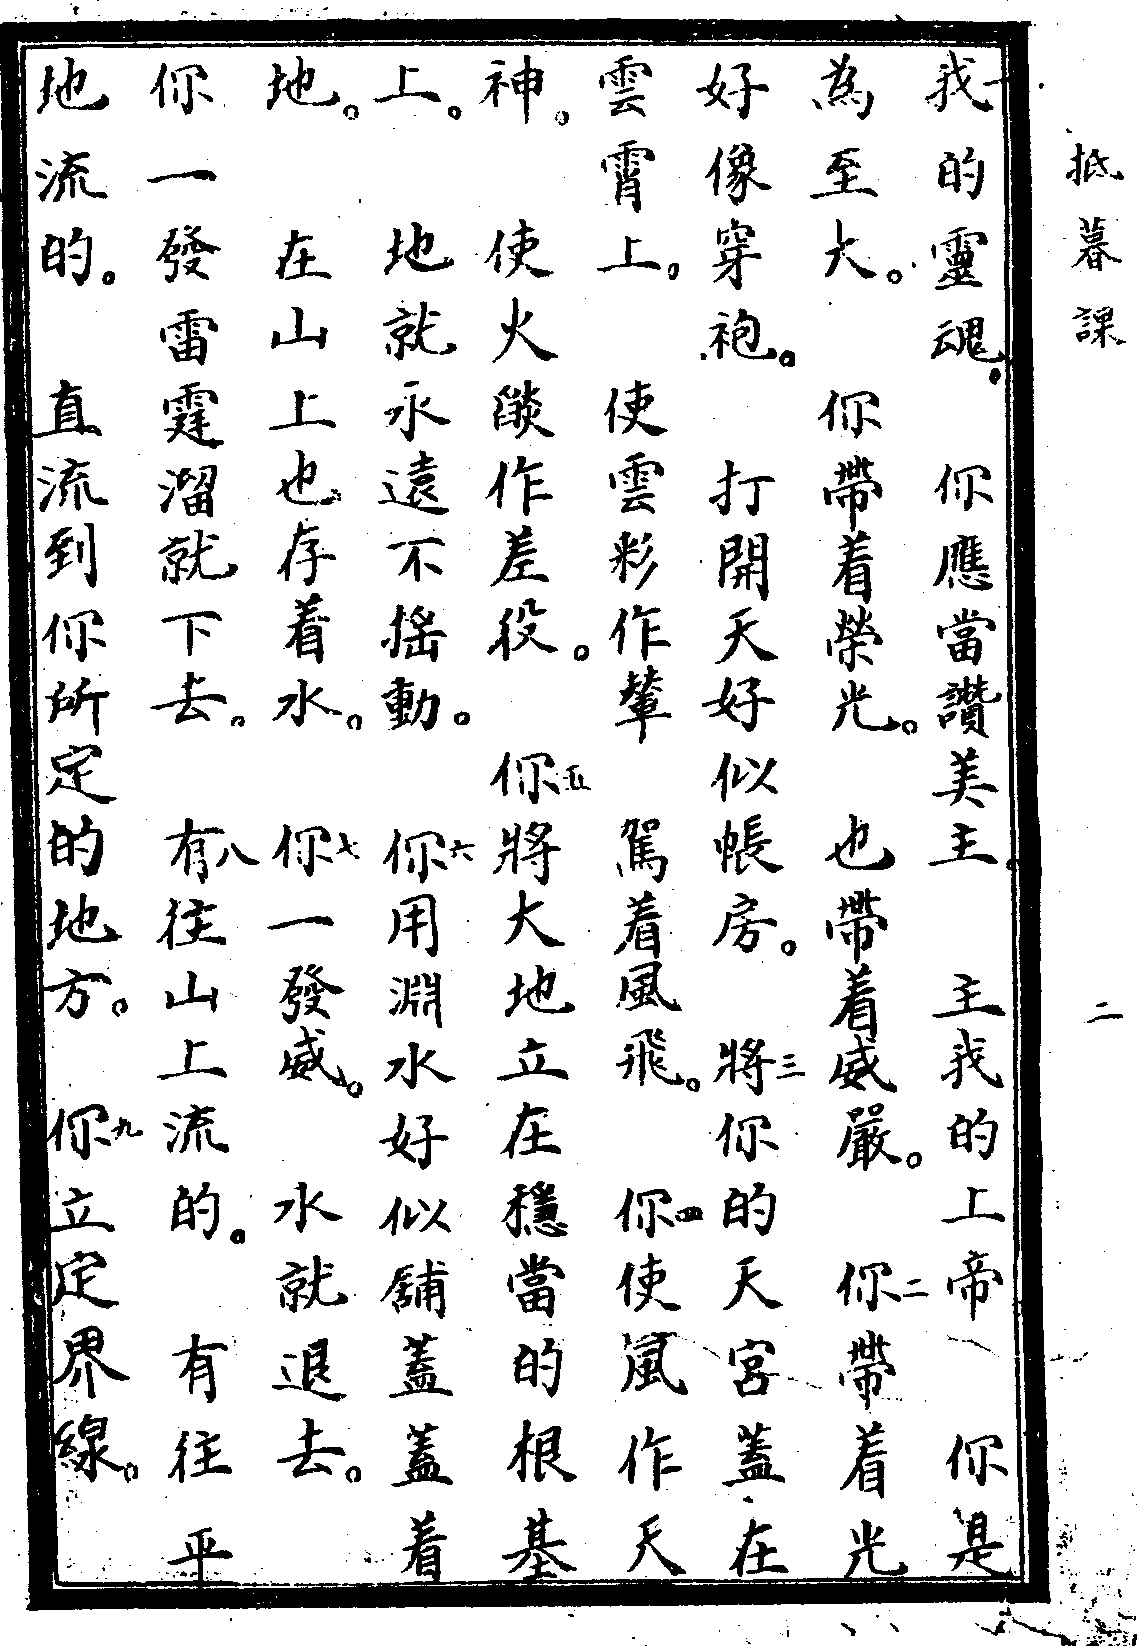 抵暮課
二
我一的靈魂。你應當讚美主　主我的上帝　你是
為至大。你帶着榮光。也帶着威嚴。你二帶着光
好像穿袍。打開天好似帳房。將三你的天宮蓋在
雲霄上。使雲彩作輦　駕着風飛。你四使風作天
神。使火燄作差役。你五將大地立在穩當的根基
上。地就永遠不搖動。你六用淵水好似舖蓋蓋着
地。在山上也存着水。你七一發威。水就退去。
你一發雷霆溜就下去。有八往山上流的。有往平
地流的。直流到你所定的地方。你九立定界線。